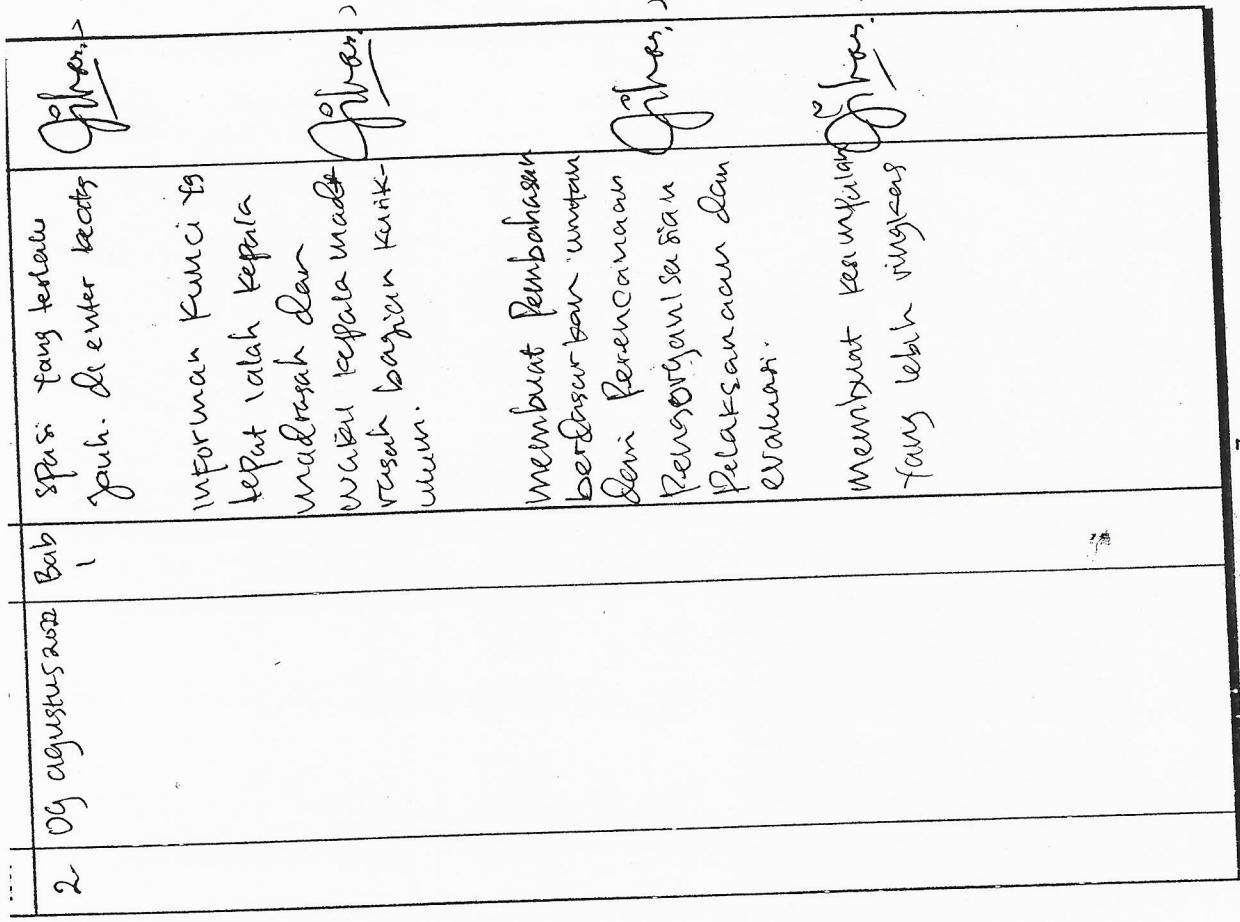 2 09 agustus 2022 Bab 1
spasi yang terlalu
jauh. di enter keatas
informan kunci yg
tepat ialah kepala
madrasah dan
wakil kepala mad
rasah bagian kurik-
ulum.
membuat Pembahasan
berdasarkan urutan
dari Perencanaan
Pengorganisasian
Pelaksanaan dan
evaluasi.
membuat kesimpulan
yang lebih ringkas